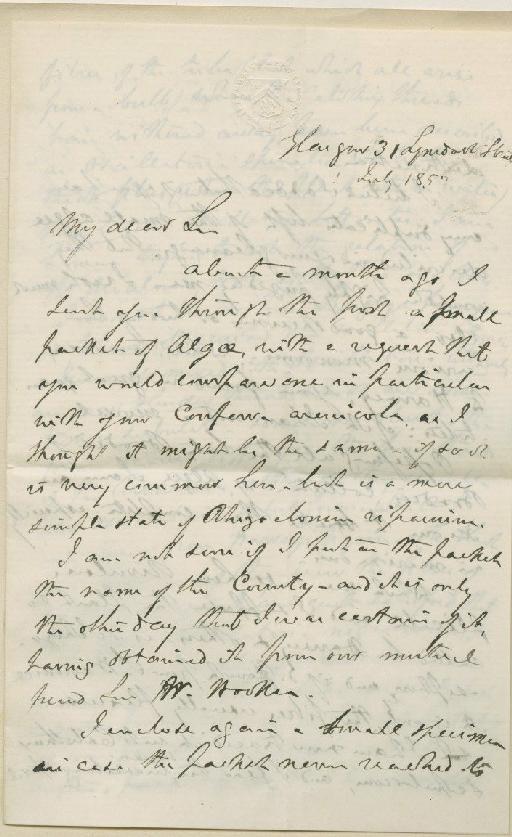 Glasgow 31 Lynedoch Street
July 185
My dear Sir
about a month ago I
sent you through the post a small
packet of Algæ, with a request that
you would compare one in particular
with your Conferva arenicola, as I
thought it might be the same - if so it
is very common here - but is a more
simple state of Rhizoclonium riparium.
I am not sure if I put on the packet
the name of the County - and it is only
the other day that I was certain of it,
having obtained it from our mutual
friend Sir W. Hooker.
I enclose again a small specimen
in case the packet never reached